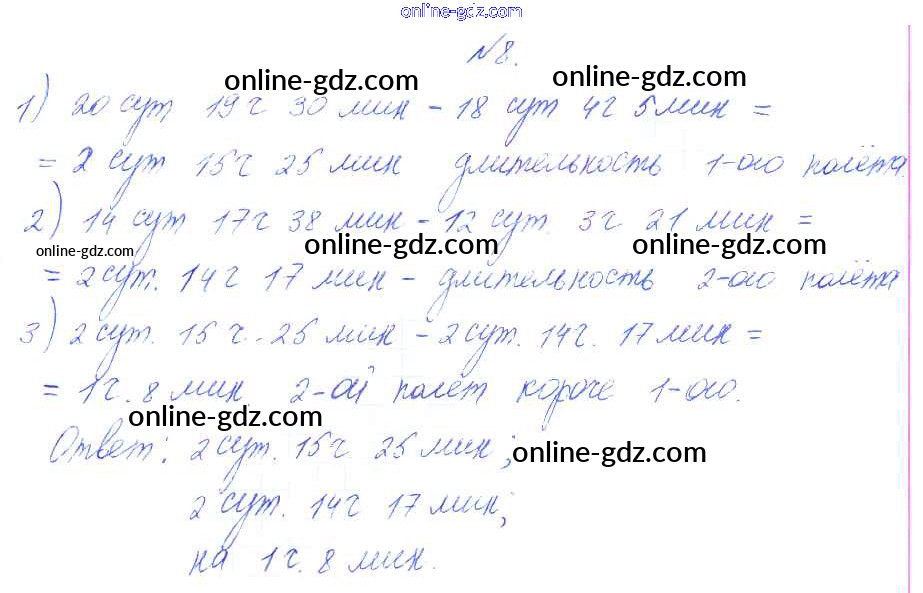 online-gdz.com
№8.
online-gdz.com online-gdz.com
1) 20 сут 19 г 30 мин - 18 сут 4г 5 мин =
= 2 сут 15г 25 мин длительность 1-ого полёта.
2) 14 сут 17г 38 мин - 12 сут. 3г 21 мин =
online-gdz.com online-gdz.com online-gdz.com
= 2 сут. 14г 17 мин - длительность 2-ого полёта
3) 2 сут. 15 г. 25 мин - 2 сут. 14г. 17 мин =
= 1г. 8 мин 2-ой полёт короче 1-ого.
online-gdz.com
Ответ: 2 сут. 15г 25 мин;
online-gdz.com
2 сут. 14г 17 мин;
на 1г. 8 мин.